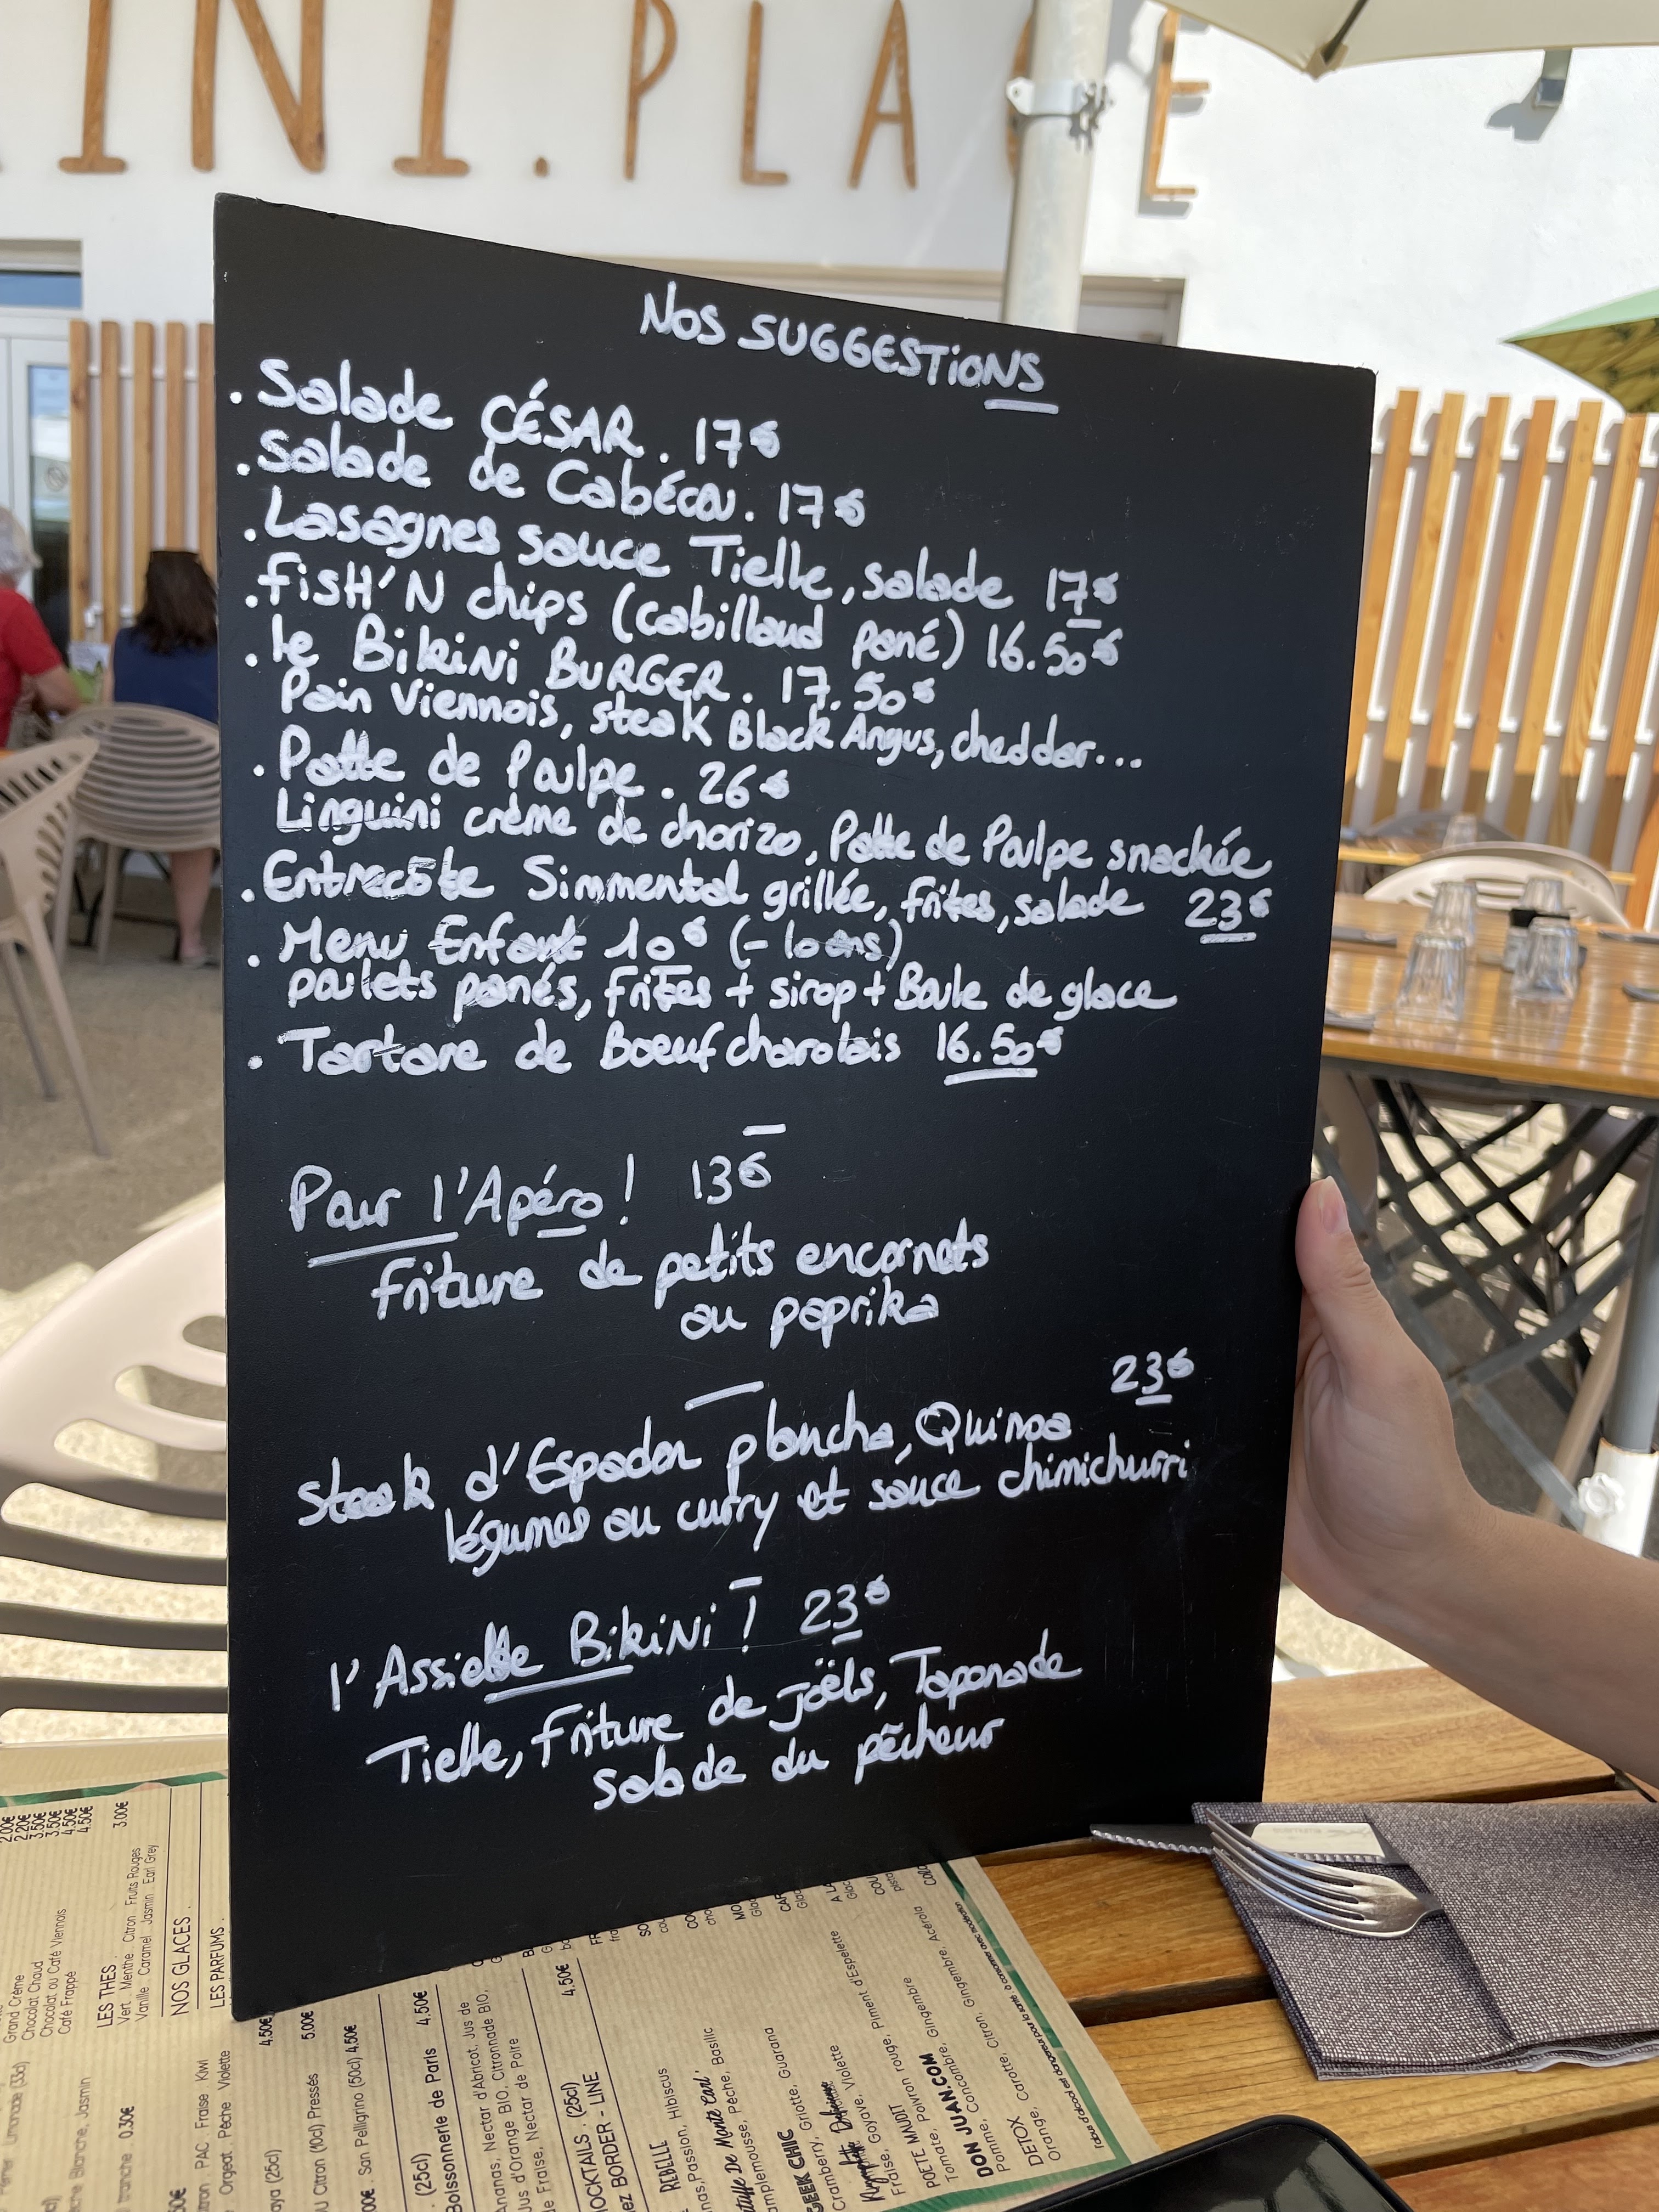 INI.PLAGE
Nos SUGGESTiONS
. Salade CÉSAR. 17€
. Salade de Cabécou. 17€
. Lasagnes sauce Tielle, salade 17€
. FisH'N chips (cabillaud pané) 16.50€
. le BikiNi BURGER. 17.50€
Pain Viennois, steak Black Angus, cheddar...
. Patte de Poulpe. 26€
Linguini crème de chorizo, Patte de Poulpe snackée
. Entrecôte Simmental grillée, frites, salade 23€
. Menu Enfant 10€ (- 10 ans)
poulets panés, frites + sirop + Boule de glace
. Tartare de Boeuf charolais 16.50€
Pour l'Apéro! 13€
Friture de petits encornets
au paprika
23€
Steak d'Espadon plancha, Quinoa
légumes au curry et sauce chimichurri
l'Assiette BikiNi! 23€
Tielle, Friture de joëls, Tapenade
Salade du pêcheur
2.00€
2.20€
Grand Crème 3.50€
Chocolat Chaud 3.50€
Chocolat ou Café Viennois 4.50€
Café Frappé 4.50€
LES THES. 3.00€
Vert. Menthe. Citron. Fruits Rouges
Vanille. Caramel. Jasmin. Earl Grey
NOS GLACES.
LES PARFUMS.
(33cl)
Blanche, Jasmin
tranche 0.30€
PAC Fraise Kiwi
Orgeat Pêche Violette
(25cl) 4.50€
Citron (10cl) Pressés 5.00€
San Pelligrino (50cl) 4.50€
(25cl)
Boissonnerie de Paris 4.50€
Ananas, Nectar d'Abricot, Jus de
Jus d'Orange BIO, Citronnade BIO,
de Fraise, Nectar de Poire
MOCKTAILS. (25cl) 4.50€
BORDER-LINE
REBELLE
Passion, Hibiscus
De Monte Carl'
amplemousse, Pêche, Basilic
GEEK CHIC
Cramberry, Griotte, Guarana
Fraise, Goyave, Violette
POETE MAUDIT
Tomate, Poivron rouge, Piment d'Espelette
DON JUAN.COM
Pomme, Concombre, Gingembre
DETOX
Orange, Carotte, Citron, Gingembre, Acérola
l'abus d'alcool est dangereux pour la santé, à consommer avec modération